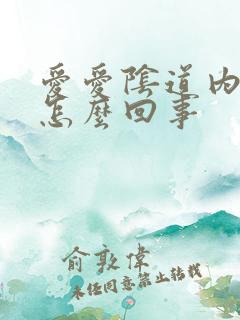 愛愛陰道內
怎麼回事
俞敦偉
未經同意禁止轉載